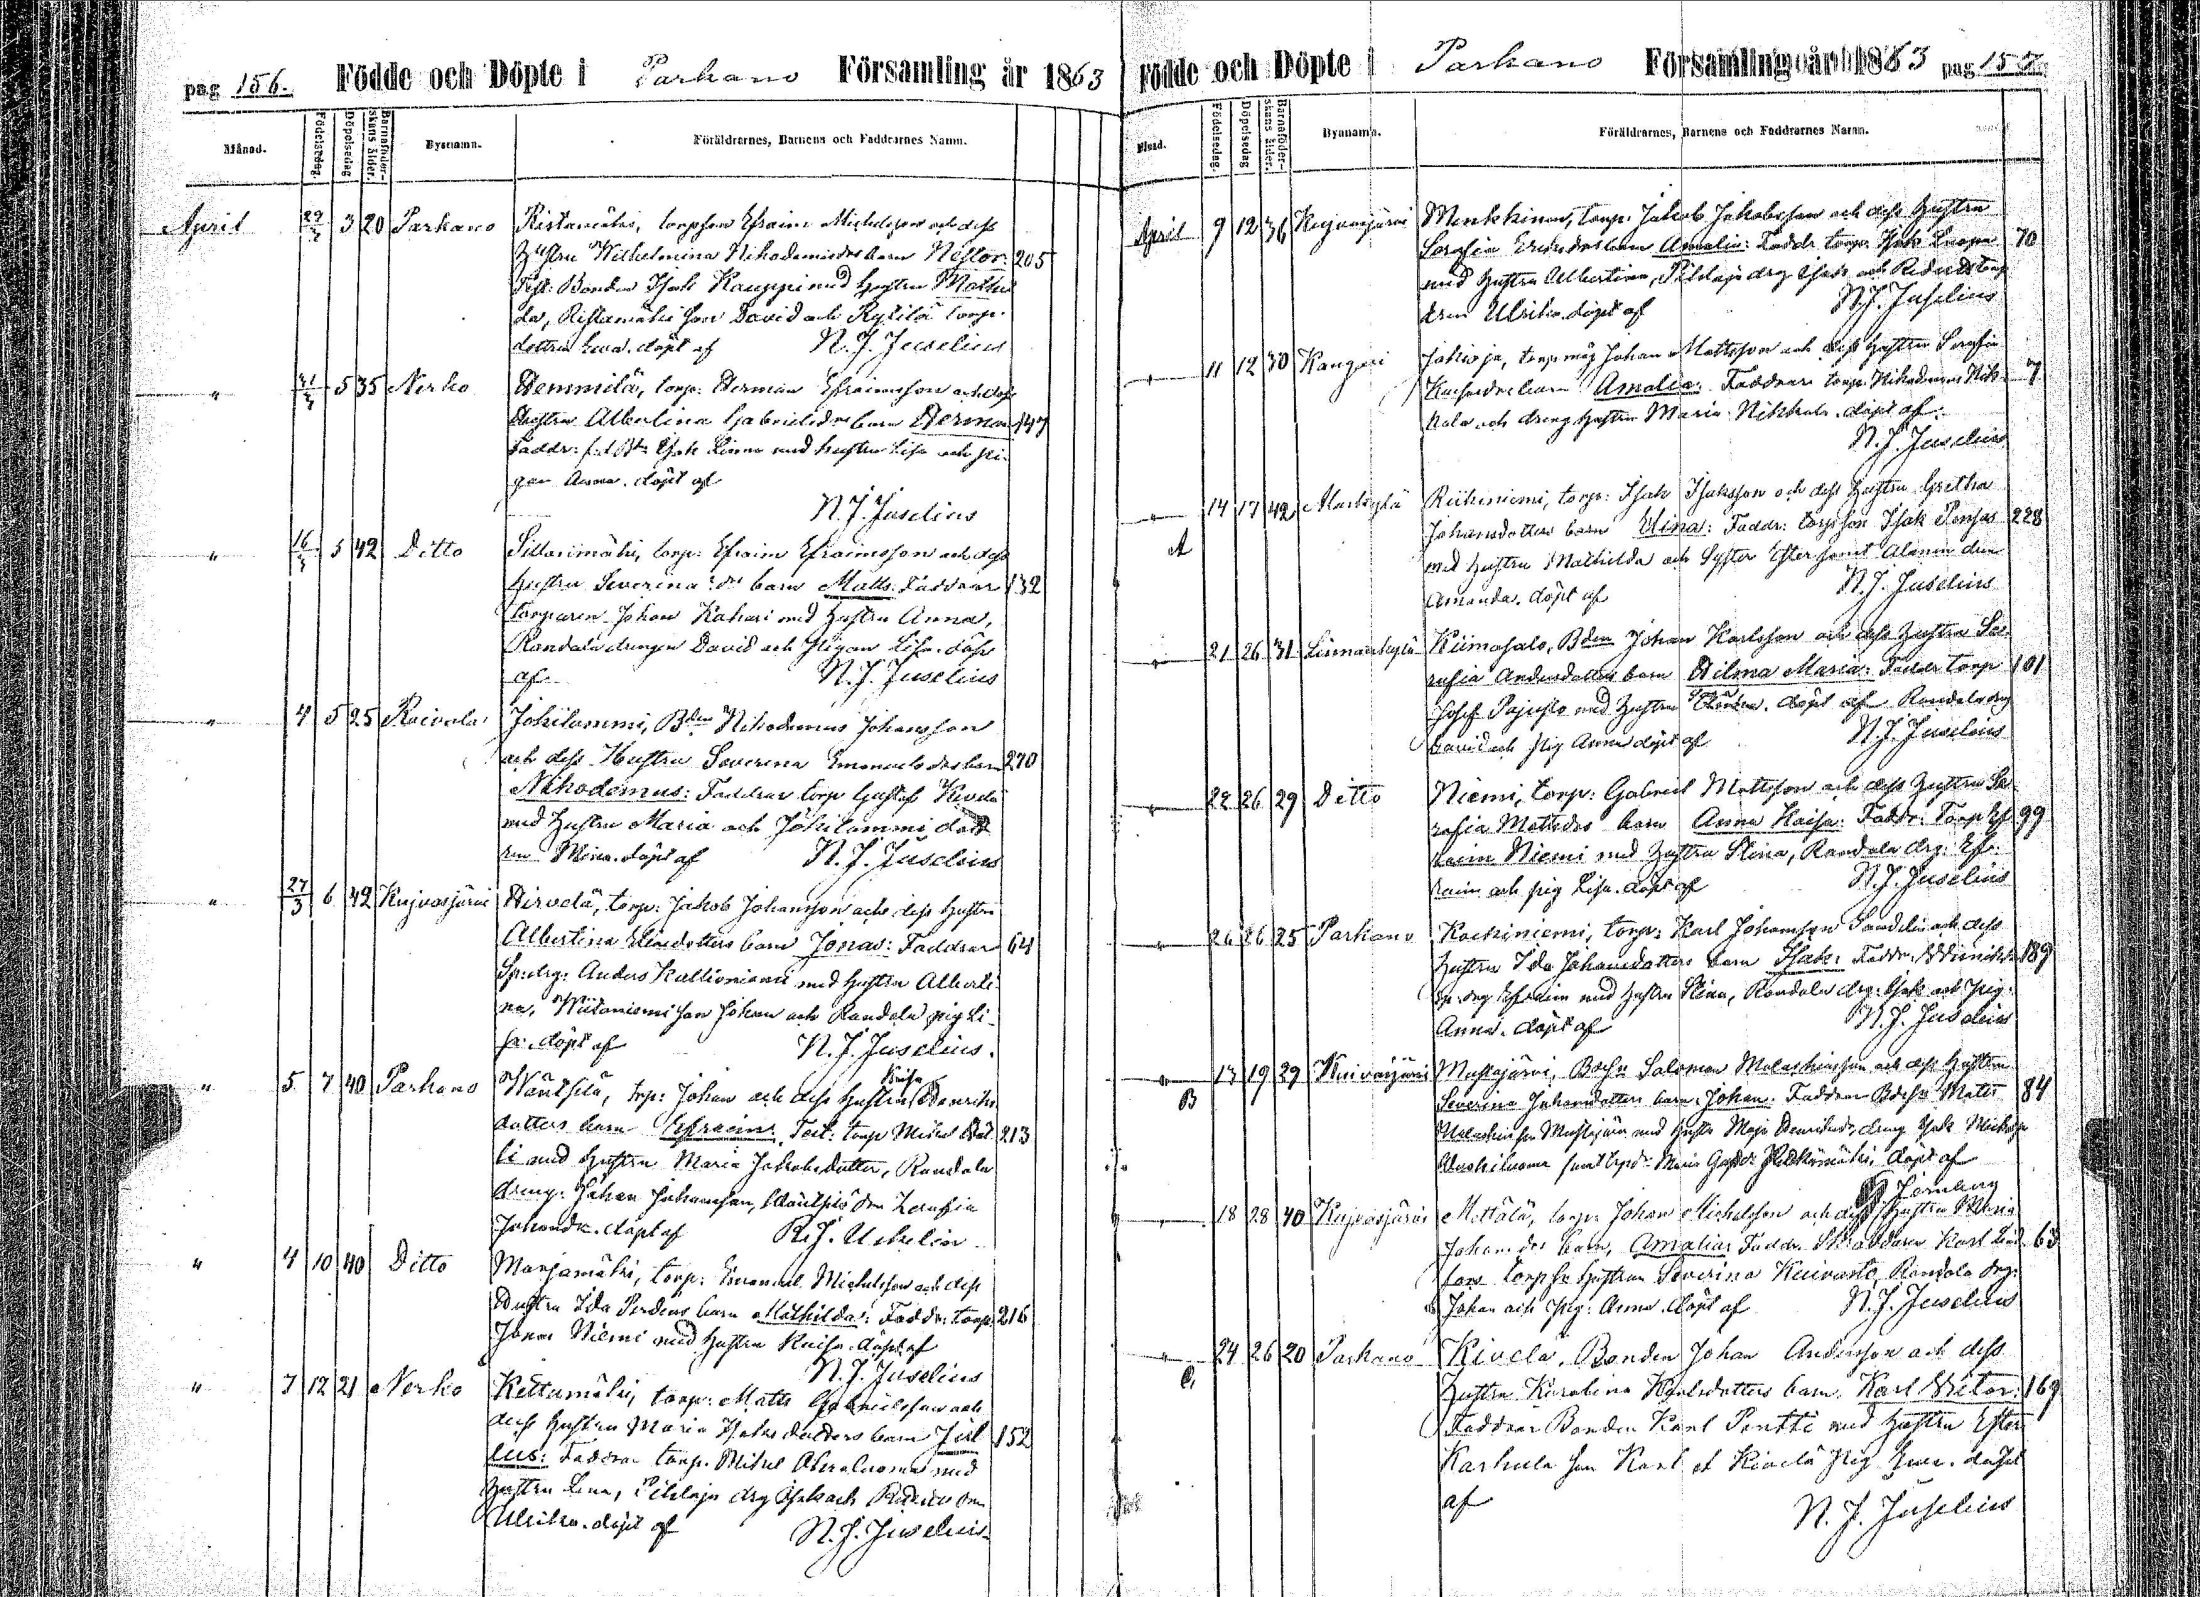 pag 156. Födde och Döpte i Parkano Församling år 1863
Månad. Födelsedag. Döpelsedag Barnaföder-skans ålder. Bynamn. Föräldrarnes, Barnens och Faddrarnes Namn.
April 29/3 3 20 Parkano Ristamäki, torpson Efraim Michelsson och dess
Hustru Wilhelmina Nikodemidr barn Nestor: 205
Test: Bonden Isak Kauppi med Hustru Mathil
da, Ristamäki son David och Kytölä torp.
dottren Eva. döpt af N. J. Juselius
" 31/3 5 35 Nerko Hemmilä, torp: Herman Efraimsson och dess
Hustru Albertina Gabrielsdr barn Herman 147
Faddr: Isak Linna med hustru Lisa och pi-
gan Anna. döpt af
N. J. Juselius
" 16/3 5 42 Ditto torp: Efraim Efraimsson och dess
Hustru Severina dr barn Matts. Faddrar 132
torparen Johan Kahari med Hustru Anna,
Randala drengen David och pigan Lisa. döpt
af N. J. Juselius
" 4 5 25 Raivala Jokilammi, Bden Nikodemus Johansson
och dess Hustru Severina Emanuels drs barn 270
Nikodemus: Faddrar torp Gustaf Kivelä
med Hustru Maria och Jokilammi dott
ren Mina. döpt af N. J. Juselius
" 27/3 6 42 Kujvasjärvi Hirvelä, torp: Jakob Johansson och dess Hustru
Albertina dotters barn Jonas: Faddrar 64
Sp:drg: Anders Kallioniemi med Hustru Alberti-
na, Niitoniemi son Johan och Randala pig Li-
sa. döpt af N. J. Juselius.
" 5 7 40 Parkano Wäntsilä, trp: Johan och dess Hustru Kaisa Henriks
dotters barn Efraim. Test: torp Mikel 213
li med Hustru Maria Jakobsdotter, Randala
dreng: Johan Johansson, Wäntsilä drn Serafia
Johansdr. döpt af
" 4 10 40 Ditto Marjamäki, torp: Emanuel Michelsson och dess
Hustru Ida barn Mathilda: Faddr: torp. 216
Jonas Niemi med Hustru Kaisa. döpt af
N. J. Juselius
" 7 12 21 Nerko Kettumäki, torp: Matts Gabrielsson och
dess Hustru Maria Isaks dotters barn Juli 152
us: Faddrar torp. Mikel med
Hustru Lena, Pihlaja drg Isak och drn
Ulrika. döpt af N. J. Juselius
Födde och Döpte i Parkano Församling år 1863 pag 157.
Månad. Födelsedag. Döpelsedag Barnaföder-skans ålder. Bynamn. Föräldrarnes, Barnens och Faddrarnes Namn.
April 9 12 36 Kujvasjärvi Menkkinen, torp: Jakob Jakobsson och dess Hustru
Serafia Eriksdr barn Amalia: Faddr torp. Isak 70
med Hustru Albertina, Pihlaja drg Isak och torp
dren Ulrika. döpt af N. J. Juselius
" 11 12 30 Kangari Jokioja, torp: måg Johan Mattsson och dess Hustru Serafia
barn Amalia: Faddrar torp. Nikodemus Nik- 7
kala och dreng Hustru Maria Nikkala. döpt af
N. J. Juselius
" A 14 17 42 Alaskylä Riihiniemi, torp: Isak Isaksson och dess Hustru Gretha
Johansdotters barn Mina: Faddr: torpson Isak 228
med Hustru Mathilda och Syster Ester samt Alanen drn
Amanda. döpt af N. J. Juselius
" 21 26 31 Linnankylä Kiimasalo, Bden Johan Karlsson och dess Hustru Se-
rafia Andersdotters barn Hilma Maria: Faddr torp 101
Josef Pajusto med Hustru döpt af Randala drg
David och pig Anna döpt af N. J. Juselius
" 22 26 29 Ditto Niemi, torp: Gabriel Mattsson och dess Hustru Se-
rafia Mattsdrs barn Anna Kaisa: Faddr: Torp Ef- 99
raim Niemi med Hustru Stina, Randala drg: Ef-
raim och pig Lisa. döpt af N. J. Juselius
" 26 26 25 Parkano Koskiniemi, torp: Karl Johansson Sandelin och dess
Hustru Ida Johansdotters barn Isak: Faddr: 189
sp:drg Efraim med Hustru Stina, Randala drg: Isak och pig:
Anna. döpt af N. J. Juselius
" B 13 19 29 Kuivasjärvi Mustajärvi, Bdsn Salomon Malachiasson och dess Hustru
Severina Johansdotters barn Johan. Faddrar Bdsn Matts 84
Malachiasson Mustajärvi med Hustru Maja Henriksdr, dreng Isak
samt Maria döpt af
Jernberg
" 18 28 40 Kujvasjärvi Mattila, torp: Johan Michelsson och dess Hustru Maria
Johans drs barn, Amalia: Faddr. Skräddaren Karl Lind- 63
fors torpsn Hustrun Severina Kuivasto, Randala drg:
Johan och pig: Anna. döpt af N. J. Juselius
" C. 24 26 20 Parkano Kivelä, Bonden Johan Andersson och dess
Hustru Karolina Karlsdotters barn. Karl Viktor: 169
Faddrar Bonden Karl Pentti med Hustru Ester
Karhula son Karl et Kivelä pig Eva. döpt
af N. J. Juselius